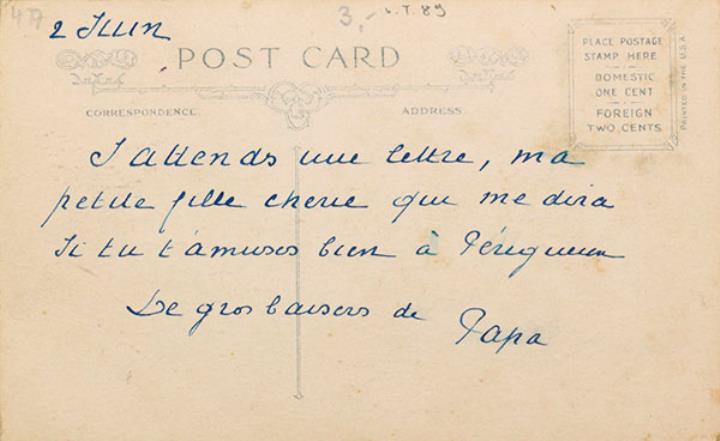 47
3,-
2 JUIN
POST CARD
CORRESPONDENCE.
ADDRESS.
PLACE POSTAGE
STAMP HERE
DOMESTIC
ONE CENT
FOREIGN
TWO CENTS
PRINTED IN THE U.S.A.
J attends une lettre, ma
petite fille cherie qui me dira
Si tu t'amuses bien à Périgueux
De gros baisers de
Papa